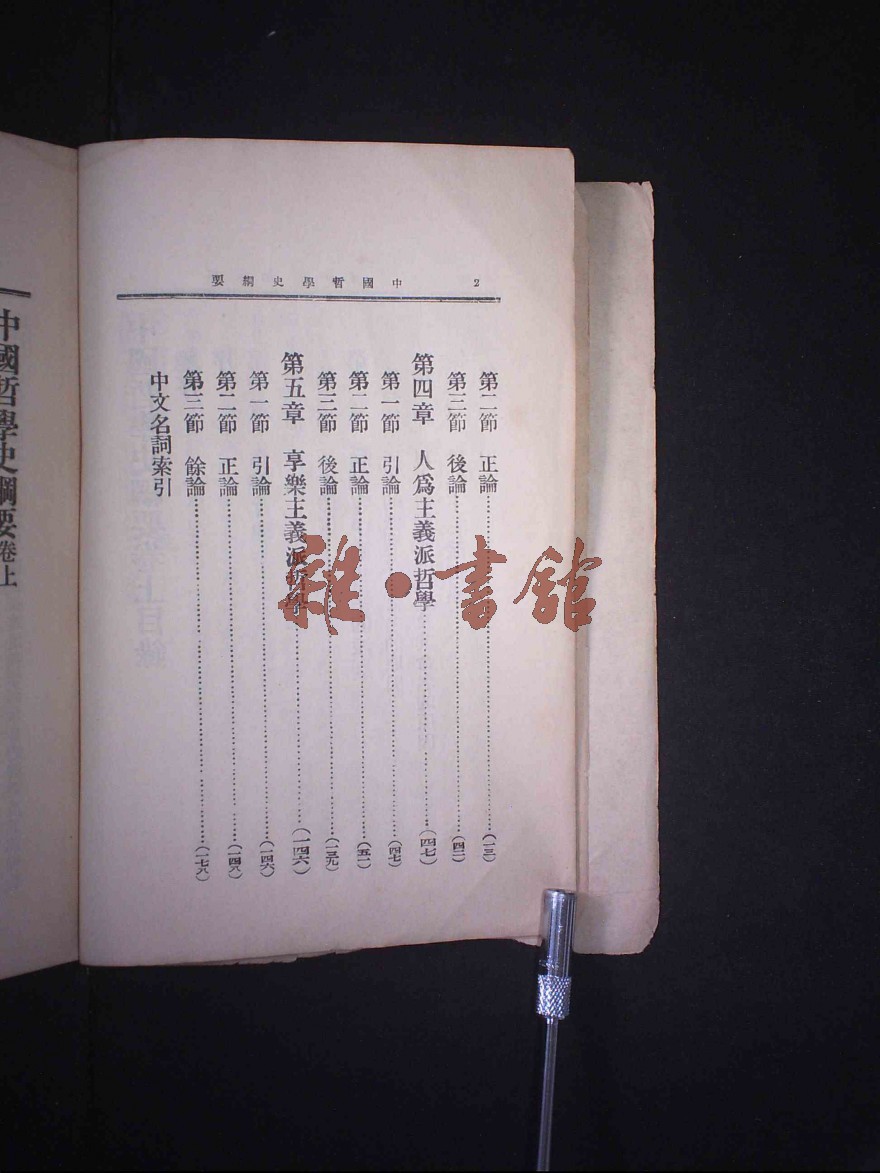 中國哲學史綱要 2
第二節 正論……(一三)
第三節 後論……(四二)
第四章 人爲主義派哲學……(四七)
第一節 引論……(四七)
第二節 正論……(五一)
第三節 後論……(一三九)
第五章 享樂主義派哲學……(一四六)
第一節 引論……(一四六)
第二節 正論……(一四八)
第三節 餘論……(一七八)
中文名詞索引
中國哲學史綱要卷上
雜·書館